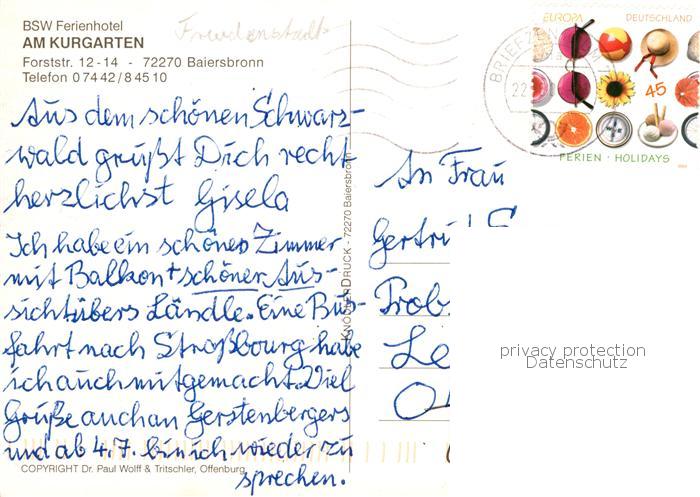 BSW Ferienhotel
AM KURGARTEN
Forststr. 12-14 - 72270 Baiersbronn
Telefon 0 74 42 / 8 45 10
Freudenstadt
EUROPA DEUTSCHLAND
45
FERIEN · HOLIDAYS
BRIEFZEN
22
Aus dem schönen Schwarz-
wald grüßt Dich recht
herzlichst Gisela
Ich habe ein schönes Zimmer
mit Balkon + schöner Aus-
sicht übers Ländle. Eine Bus-
fahrt nach Straßbourg habe
ich auch mitgemacht. Viel
Grüße auch an Gerstenbergers
und ab 4.7. bin ich wieder zu
sprechen.
An Frau
Gertru
Prob
Le
KNÖDLER DRUCK - 72270 Baiersbronn
privacy protection
Datenschutz
COPYRIGHT Dr. Paul Wolff & Tritschler, Offenburg